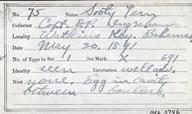 No 75 Name Sooty Tern
Collector Capt. D.P. Ingraham
Locality Watling Key, Bahamas
Date May 20. 1891
No. of Eggs in Set 1 Set Mark X 691
Identity seen Incubation well adv.
Nest none, Egg in cavity
between